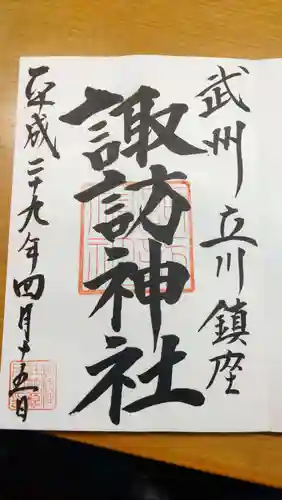 武州立川鎮座
諏訪神社
平成二十九年四月十五日